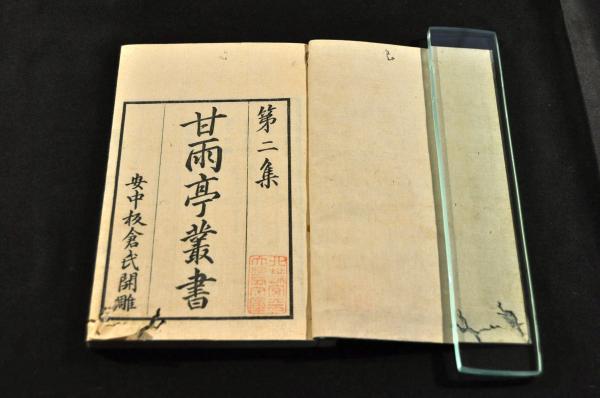 第二集
甘雨亭叢書
安中板倉氏開雕